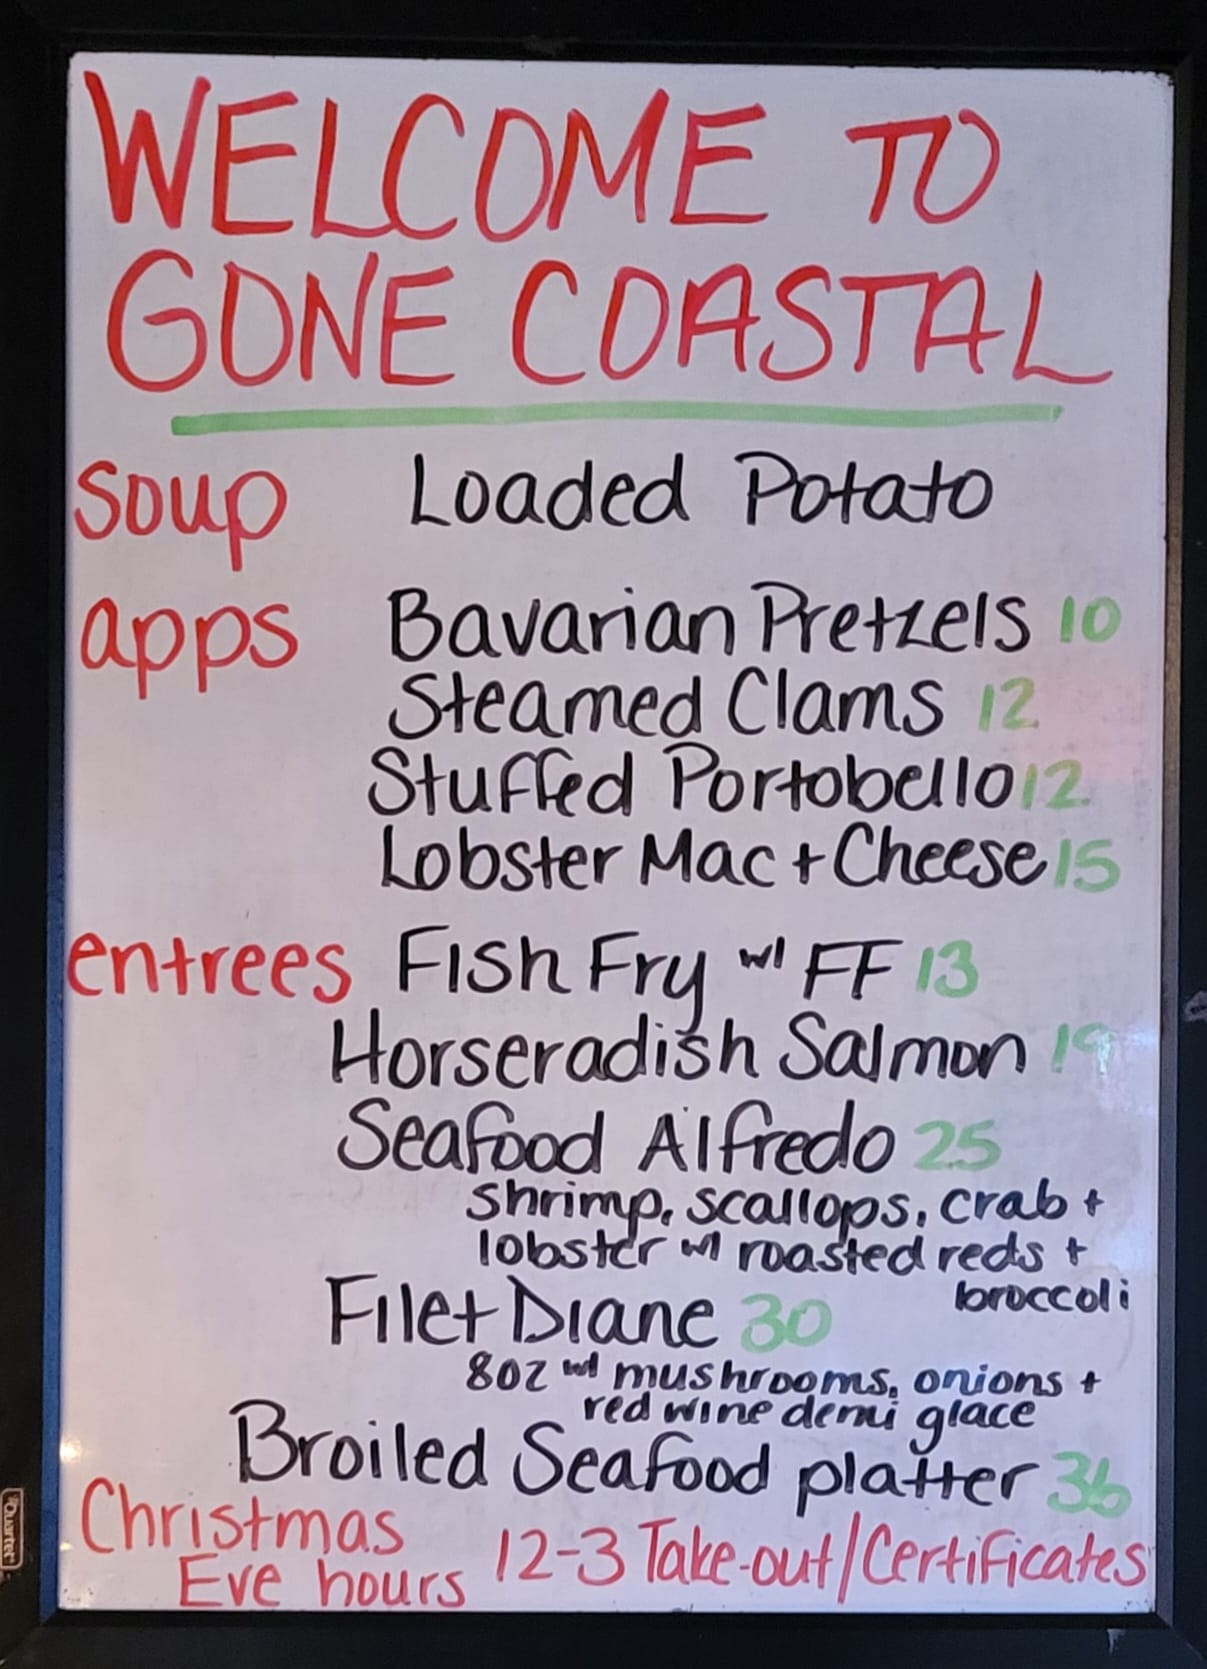 WELCOME TO
GONE COASTAL
soup Loaded Potato
apps Bavarian Pretzels 10
Steamed Clams 12
Stuffed Portobello 12
Lobster Mac + Cheese 15
entrees Fish Fry w/ FF 13
Horseradish Salmon 19
Seafood Alfredo 25
shrimp, scallops, crab +
lobster w/ roasted reds +
broccoli
Filet Diane 30
8oz w/ mushrooms, onions +
red wine demi glace
Broiled Seafood platter 36
Christmas
Eve hours 12-3 Take-out/Certificates
Quartet